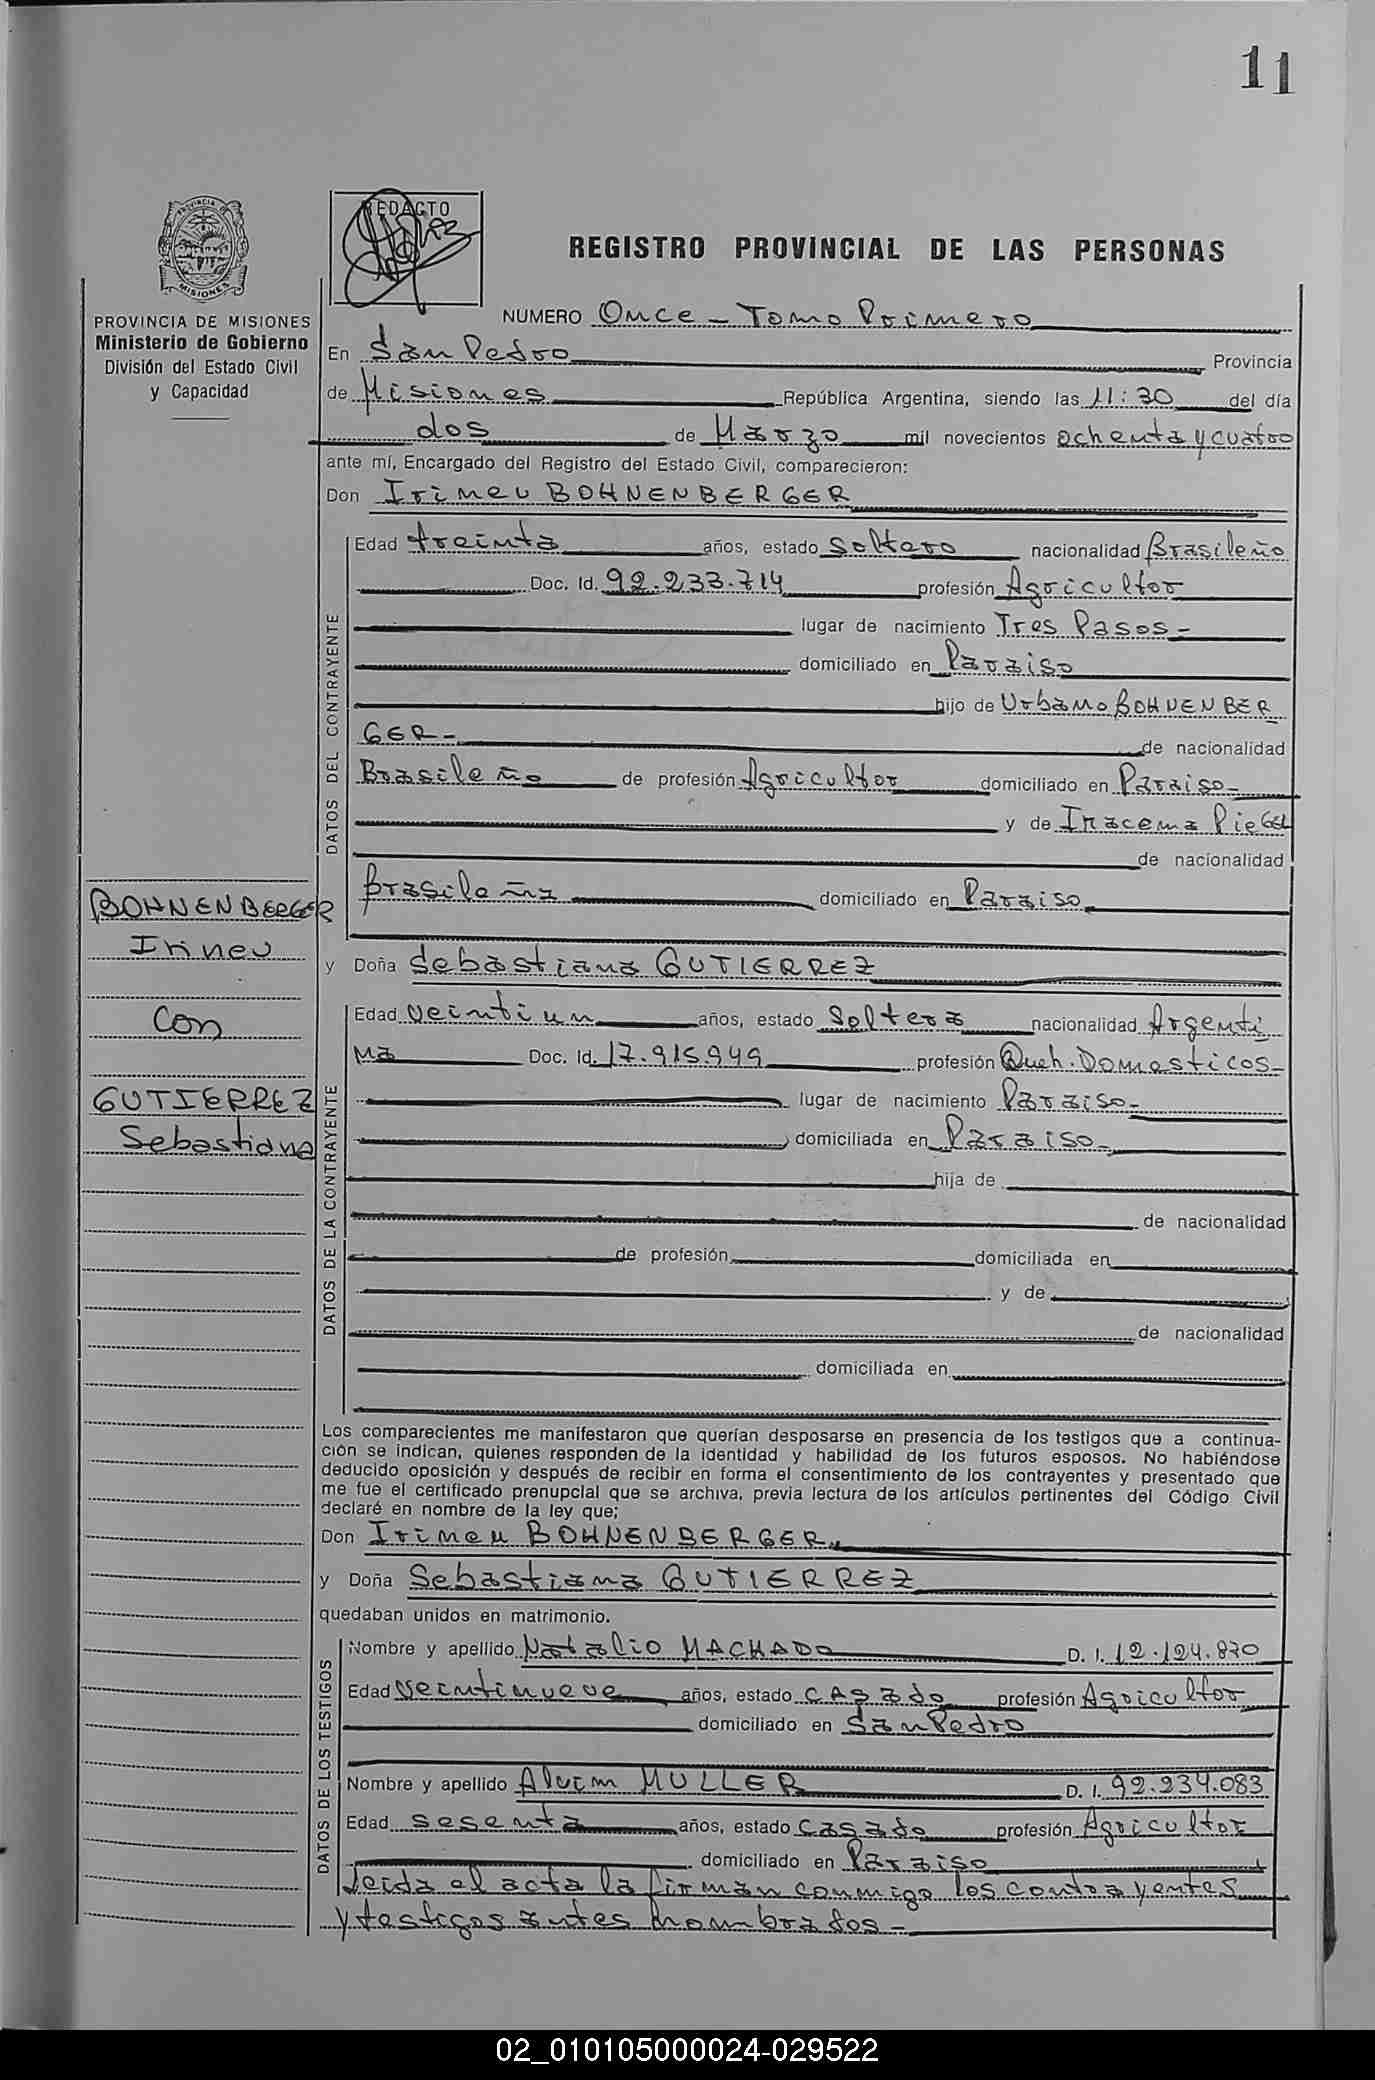 11
PROVINCIA DE
MISIONES
REDACTO
REGISTRO PROVINCIAL DE LAS PERSONAS
PROVINCIA DE MISIONES
Ministerio de Gobierno
División del Estado Civil
y Capacidad
NUMERO Once - Tomo Primero
En San Pedro Provincia
de Misiones República Argentina, siendo las 11:30 del día
dos de Marzo mil novecientos ochenta y cuatro
ante mí, Encargado del Registro del Estado Civil, comparecieron:
Don Irineu BOHNENBERGER
DATOS DEL CONTRAYENTE
Edad treinta años, estado Soltero nacionalidad Brasileño
Doc. Id. 92.233.714 profesión Agricultor
lugar de nacimiento Tres Pasos-
domiciliado en Paraiso
hijo de Urbano BOHNENBER
GER- de nacionalidad
Brasileño de profesión Agricultor domiciliado en Paraiso-
y de Iracema Piegel
de nacionalidad
Brasileña domiciliado en Paraiso
BOHNENBERGER
Irineu
con
GUTIERREZ
Sebastiana
y Doña Sebastiana GUTIERREZ
DATOS DE LA CONTRAYENTE
Edad veintiun años, estado Soltera nacionalidad Argenti
na Doc. Id. 17.915.949 profesión Queh. Domesticos-
lugar de nacimiento Paraiso-
domiciliada en Paraiso-
hija de
de nacionalidad
de profesión domiciliada en
y de
de nacionalidad
domiciliada en
Los comparecientes me manifestaron que querían desposarse en presencia de los testigos que a continua-
ción se indican, quienes responden de la identidad y habilidad de los futuros esposos. No habiéndose
deducido oposición y después de recibir en forma el consentimiento de los contrayentes y presentado que
me fue el certificado prenupcial que se archiva, previa lectura de los artículos pertinentes del Código Civil
declaré en nombre de la ley que;
Don Irineu BOHNENBERGER
y Doña Sebastiana GUTIERREZ
quedaban unidos en matrimonio.
DATOS DE LOS TESTIGOS
Nombre y apellido Natalio MACHADO D. I. 12.124.870
Edad veintinueve años, estado Casado profesión Agricultor
domiciliado en San Pedro
Nombre y apellido Alvim MULLER D. I. 92.234.083
Edad sesenta años, estado casado profesión Agricultor
domiciliado en Paraiso
Leida el acta la firman conmigo los contrayentes
y testigos antes nombrados-
02_010105000024-029522